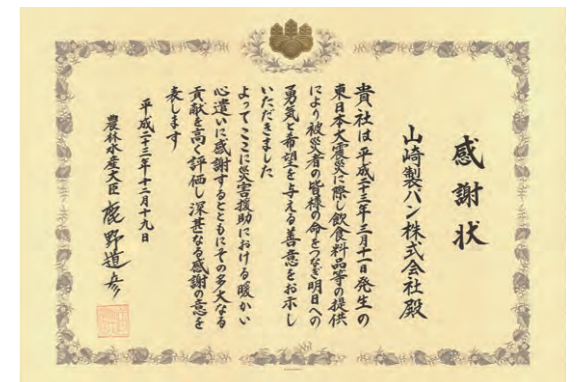 感謝状
山崎製パン株式会社殿
貴社は平成二十三年三月十一日発生の
東日本大震災に際し飲食料品等の提供
により被災者の皆様の命をつなぎ明日への
勇気と希望を与える善意をお示し
いただきました
よってここに災害援助における暖かい
心遣いに感謝するとともにその多大なる
貢献を高く評価し深甚なる感謝の意を
表します
平成二十三年十二月十九日
農林水産大臣 鹿野道彦